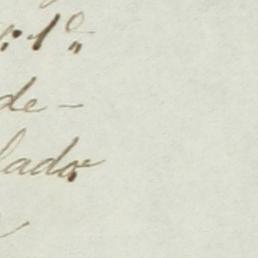 1º
de-
lado